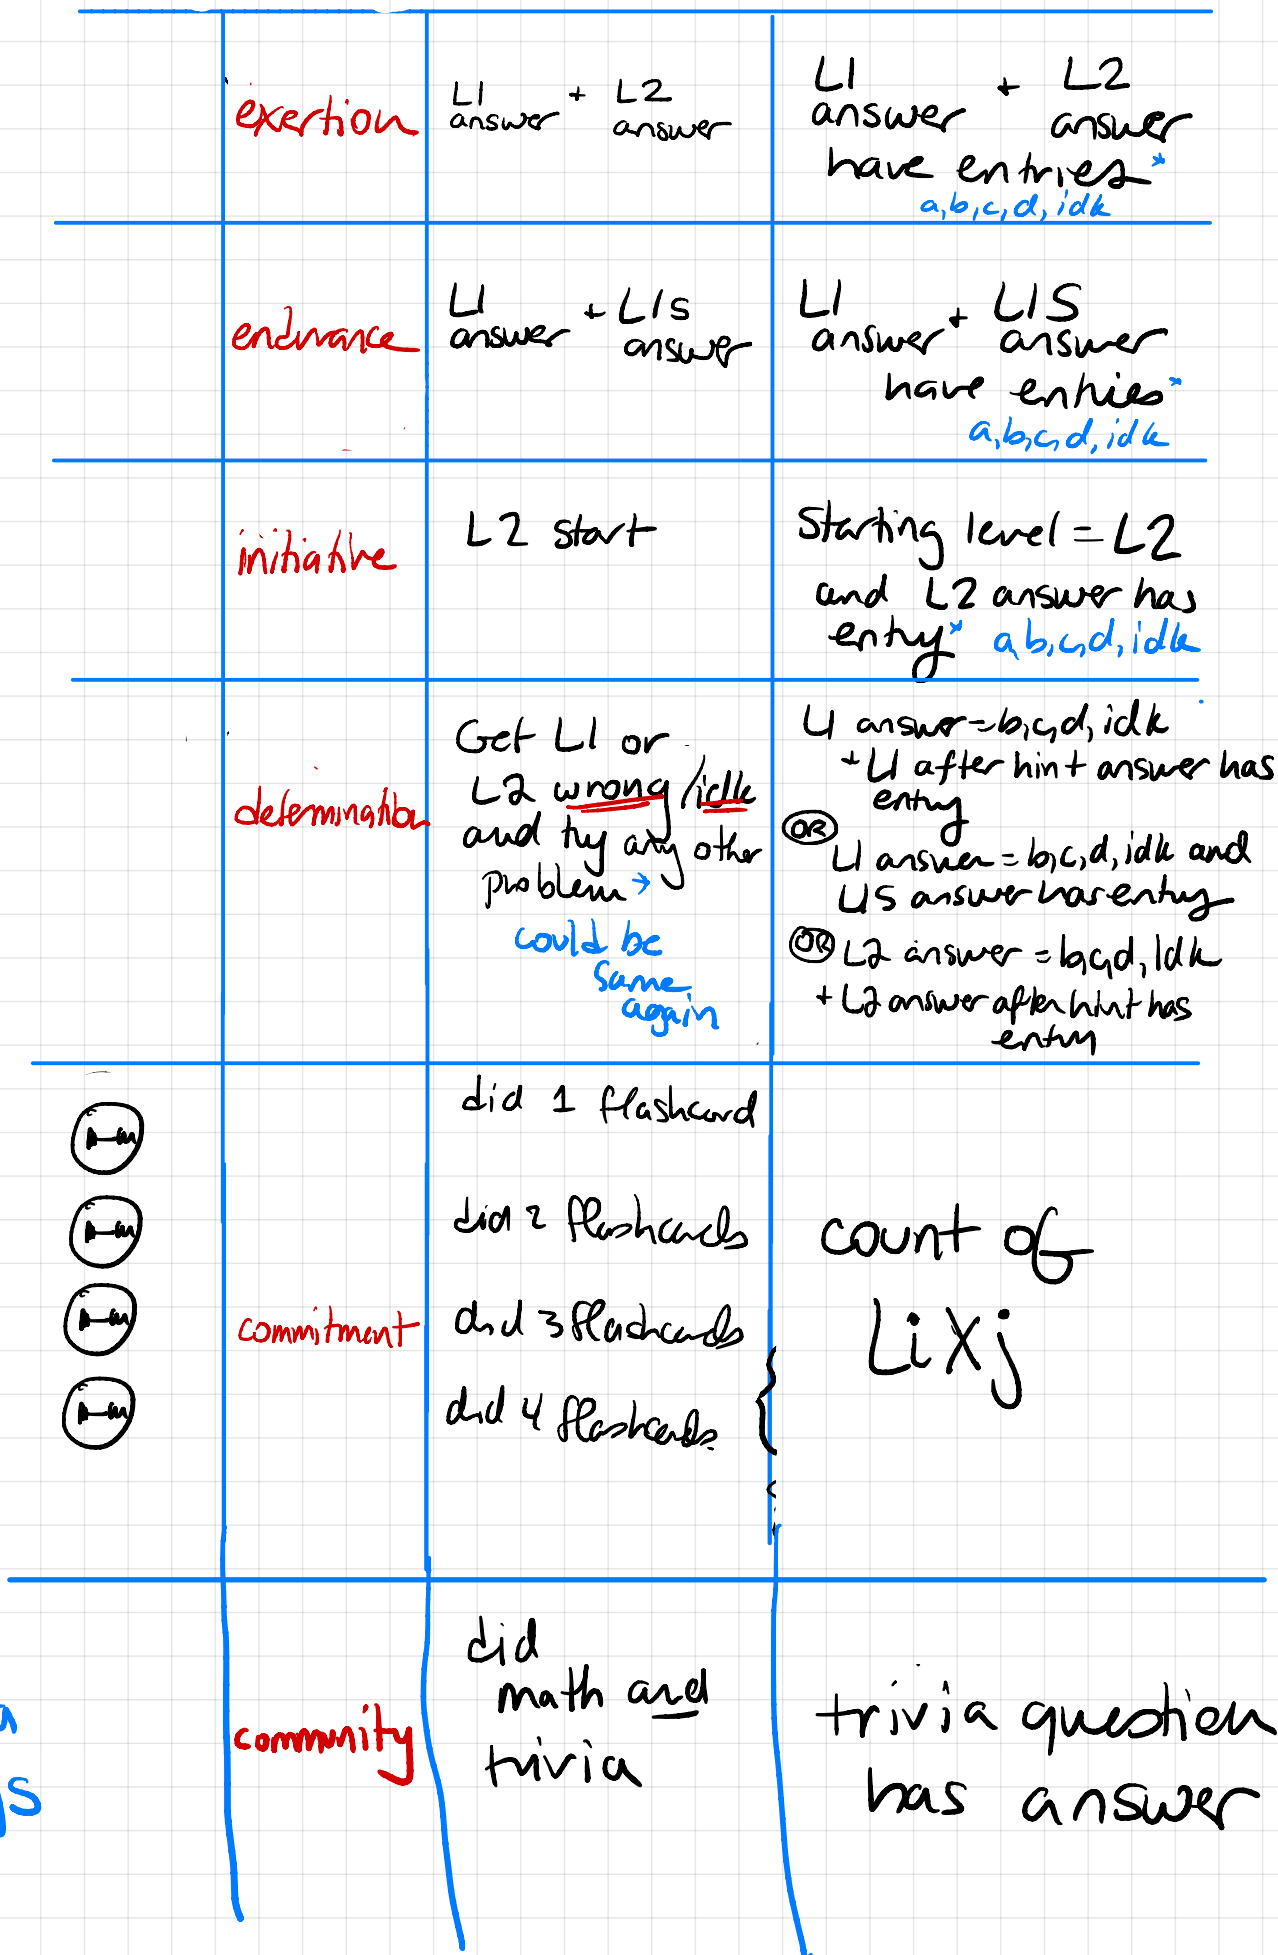 exertion
L1 + L2
answer answer
L1 + L2
answer answer
have entries*
a,b,c,d,idk
endurance
L1 + L1s
answer answer
L1 + L1S
answer answer
have entries*
a,b,c,d,idk
initiative
L2 start
Starting level = L2
and L2 answer has
entry* a,b,c,d,idk
determination
Get L1 or
L2 wrong/idk
and try any other
problem →
could be
same
again
L1 answer=b,c,d,idk
+ L1 after hint answer has
entry
OR
L1 answer = b,c,d,idk and
L1S answer has entry
OR L2 answer = b,c,d,idk
+ L2 answer after hint has
entry
commitment
did 1 flashcard
did 2 flashcards
did 3 flashcards
did 4 flashcards
count of
LiXj
community
did
math and
trivia
trivia question
has answer